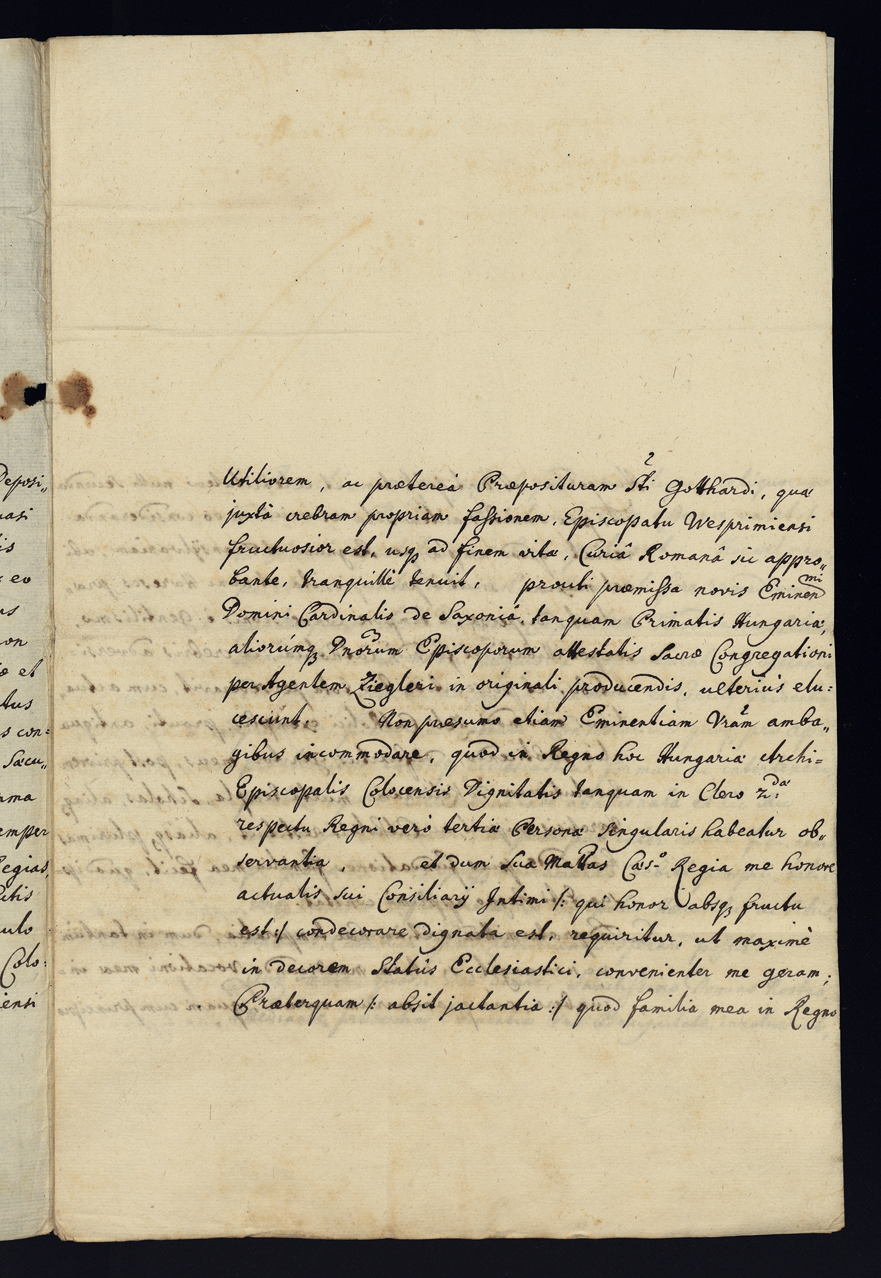 Deposi„
uasi
is
eo
us
non
æ et
tus
s con-
Sæcu„
ma
emper
Regias,
utis
ulo
Colo:
iensi
Utiliorem, ac prætereà Præposituram Sti Gotthardi, quæ
juxtà crebram propriam fassionem, Episcopatu Wesprimiensi
fructuosior est, usq₃ ad finem vitæ, Curiâ Romanâ sic appro„
bante, tranquillè tenuit, prouti præmissa novis Eminenmi
Domini Cardinalis de Saxoniâ, tanquam Primatis Hungariæ,
aliorúmq₃ Dnorum Episcoporum attestatis Sacræ Congregationi
per Agentem Ziegleri in originali producendis, ulteriùs elu:
cescunt. Non præsumo etiam Eminentiam Vram amba„
gibus incommodare, quod in Regno hoc Hungariæ Archi=
Episcopalis Colocensis Dignitatis tanquam in Clero 2da
respectu Regni verò tertiæ Personæ singularis habeatur ob„
servantia, et dum Sua Mattas Cæs-o Regia me honore
actualis sui Consiliarij Intimi /: qui honor absq₃ fructu
est :/ condecorare dignata est, requiritur, ut maximè
in decorem Statûs Ecclesiastici, convenienter me geram;
Præterquam /: absit jactantia :/ quòd familia mea in Regno